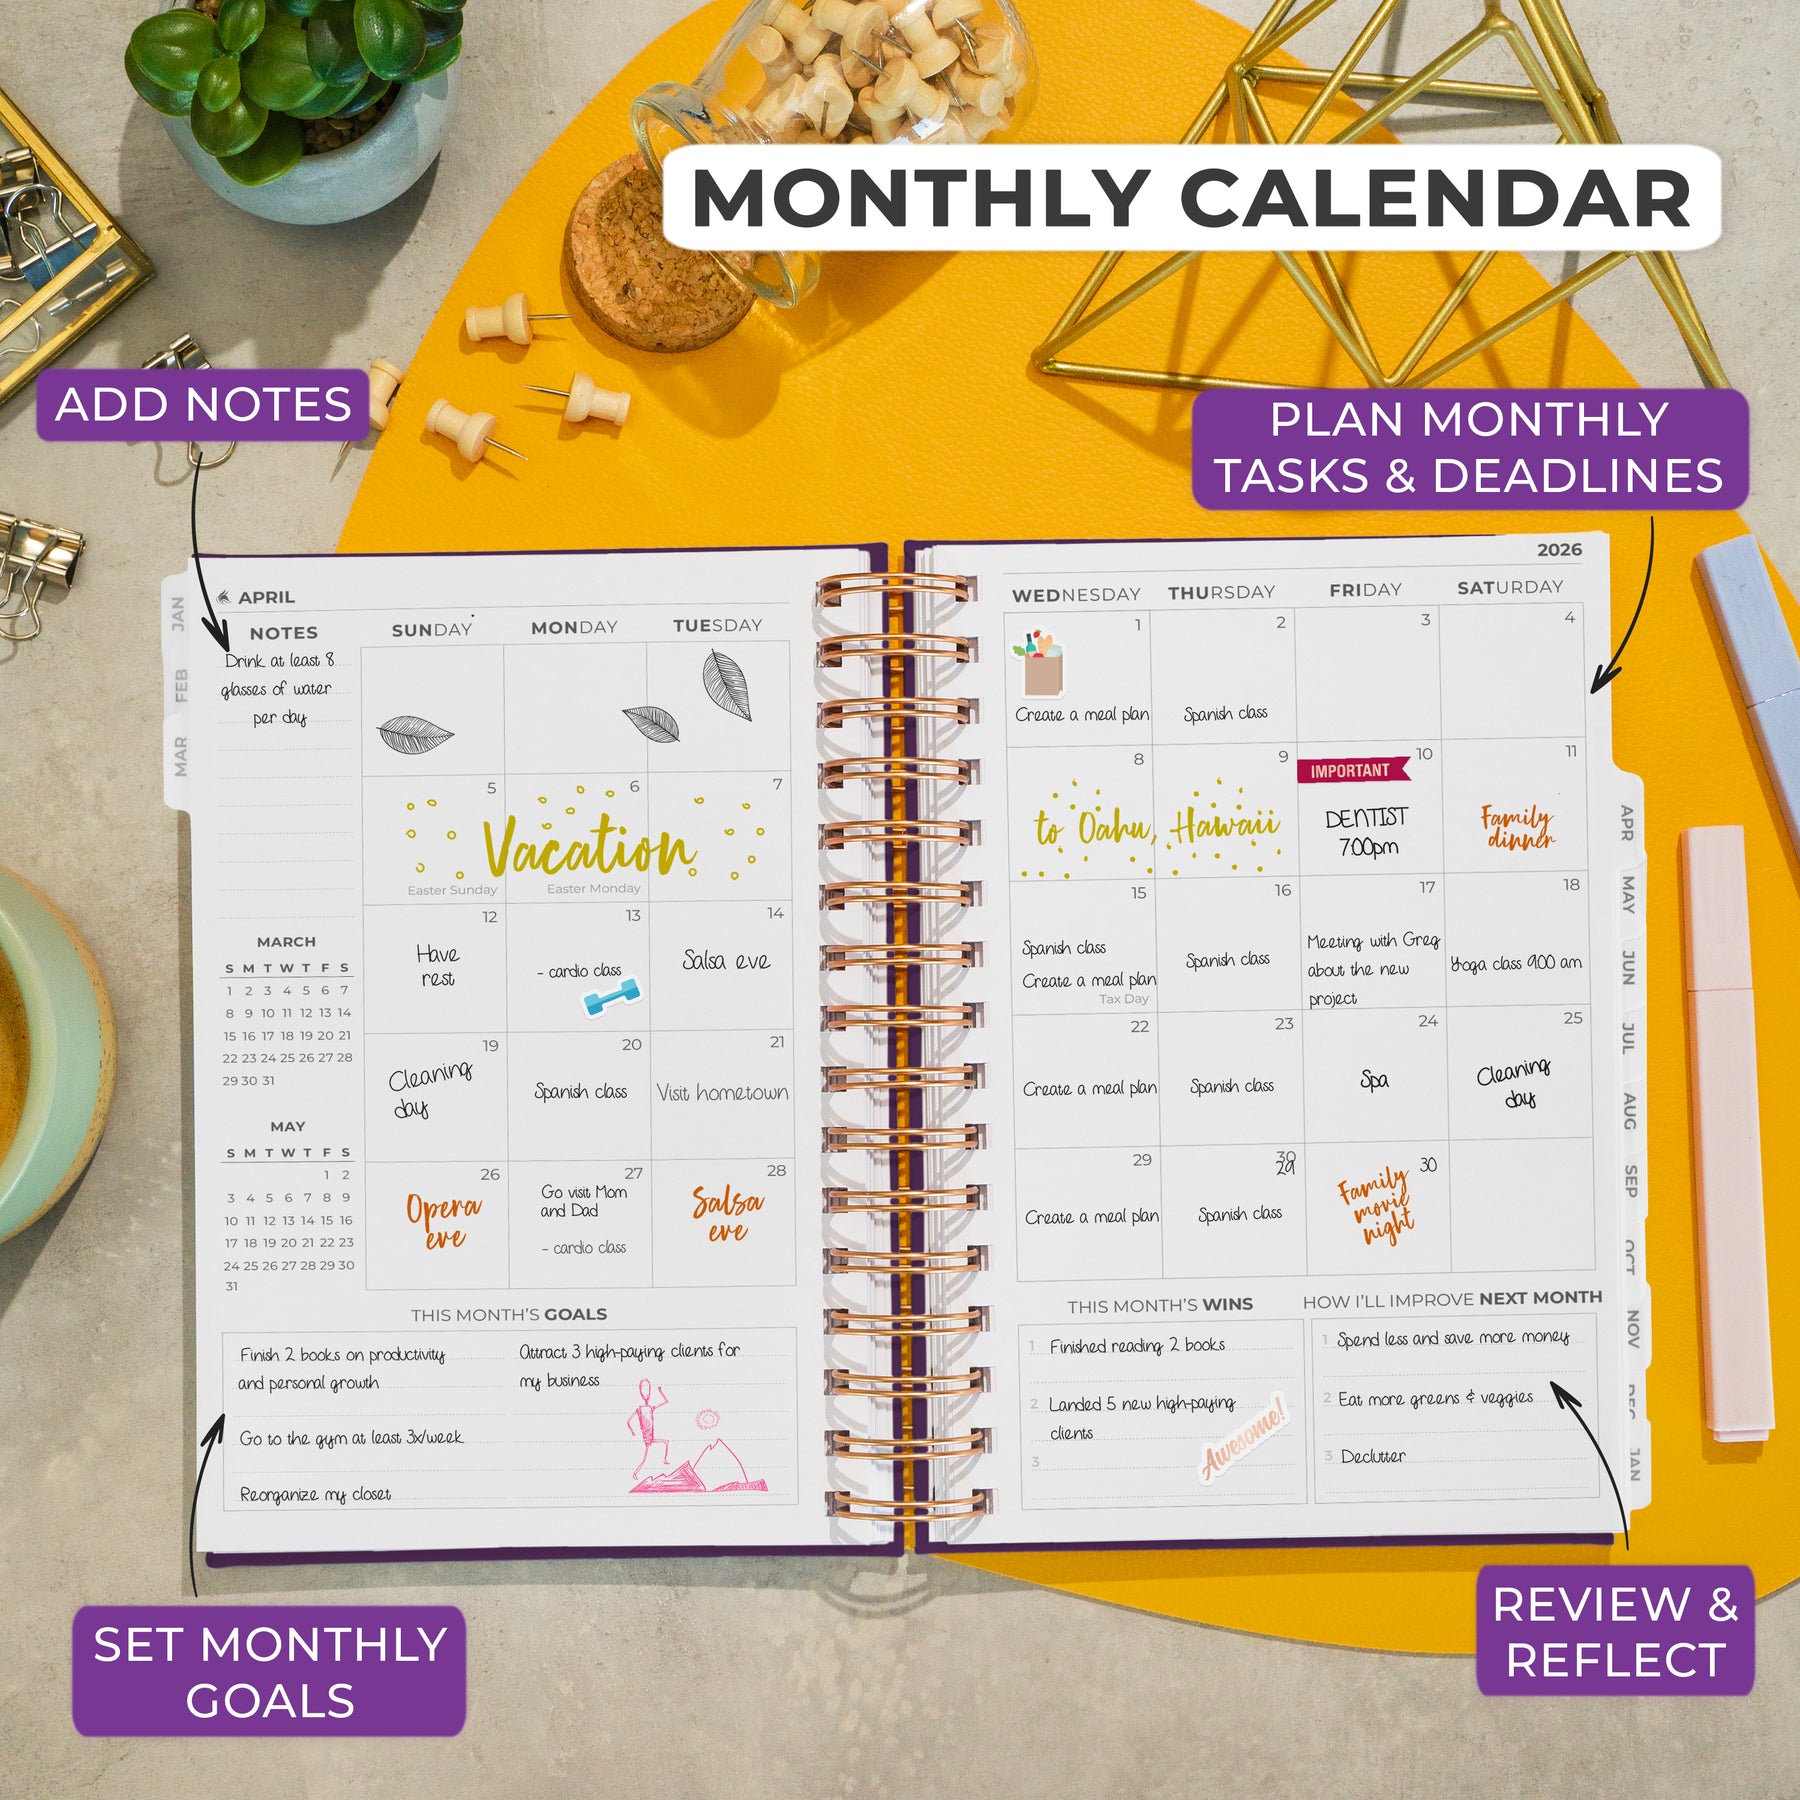 MONTHLY CALENDAR
ADD NOTES
PLAN MONTHLY
TASKS & DEADLINES
JAN
FEB
MAR
APRIL
NOTES
Drink at least 8
glasses of water
per day
SUNDAY MONDAY TUESDAY
5 6 7
Vacation
Easter Sunday Easter Monday
12 13 14
Have
rest
- cardio class
Salsa eve
19 20 21
Cleaning
day
Spanish class
Visit hometown
26 27 28
Opera
eve
Go visit Mom
and Dad
- cardio class
Salsa
eve
MARCH
S M T W T F S
1 2 3 4 5 6 7
8 9 10 11 12 13 14
15 16 17 18 19 20 21
22 23 24 25 26 27 28
29 30 31
MAY
S M T W T F S
1 2
3 4 5 6 7 8 9
10 11 12 13 14 15 16
17 18 19 20 21 22 23
24 25 26 27 28 29 30
31
THIS MONTH'S GOALS
Finish 2 books on productivity
and personal growth
Go to the gym at least 3x/week
Reorganize my closet
Attract 3 high-paying clients for
my business
2026
WEDNESDAY THURSDAY FRIDAY SATURDAY
1 2 3 4
Create a meal plan
Spanish class
8 9 10 11
to Oahu, Hawaii
IMPORTANT
DENTIST
7:00pm
Family
dinner
15 16 17 18
Spanish class
Create a meal plan
Tax Day
Spanish class
Meeting with Greg
about the new
project
Yoga class 9:00 am
22 23 24 25
Create a meal plan
Spanish class
Spa
Cleaning
day
29 30 30
29
Create a meal plan
Spanish class
Family
movie
night
THIS MONTH'S WINS
1 Finished reading 2 books
2 Landed 5 new high-paying
clients
3
Awesome!
HOW I'LL IMPROVE NEXT MONTH
1 Spend less and save more money
2 Eat more greens & veggies
3 Declutter
APR
MAY
JUN
JUL
AUG
SEP
OCT
NOV
DEC
JAN
SET MONTHLY
GOALS
REVIEW &
REFLECT